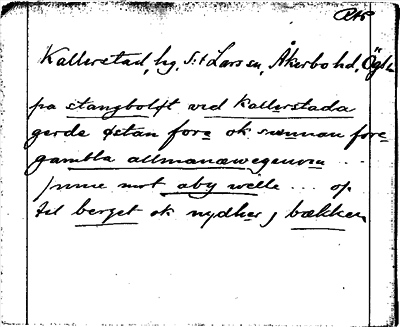 Kallerstad, hg, S:t Lars sn, Åkerbo hd, Ögl
pa stangbolst wid kallerstada
gerde østan fore ok sunnan fore
gambla allmanæwegenom ...
mot aby welle ... op
til berget ok nydher j bækken